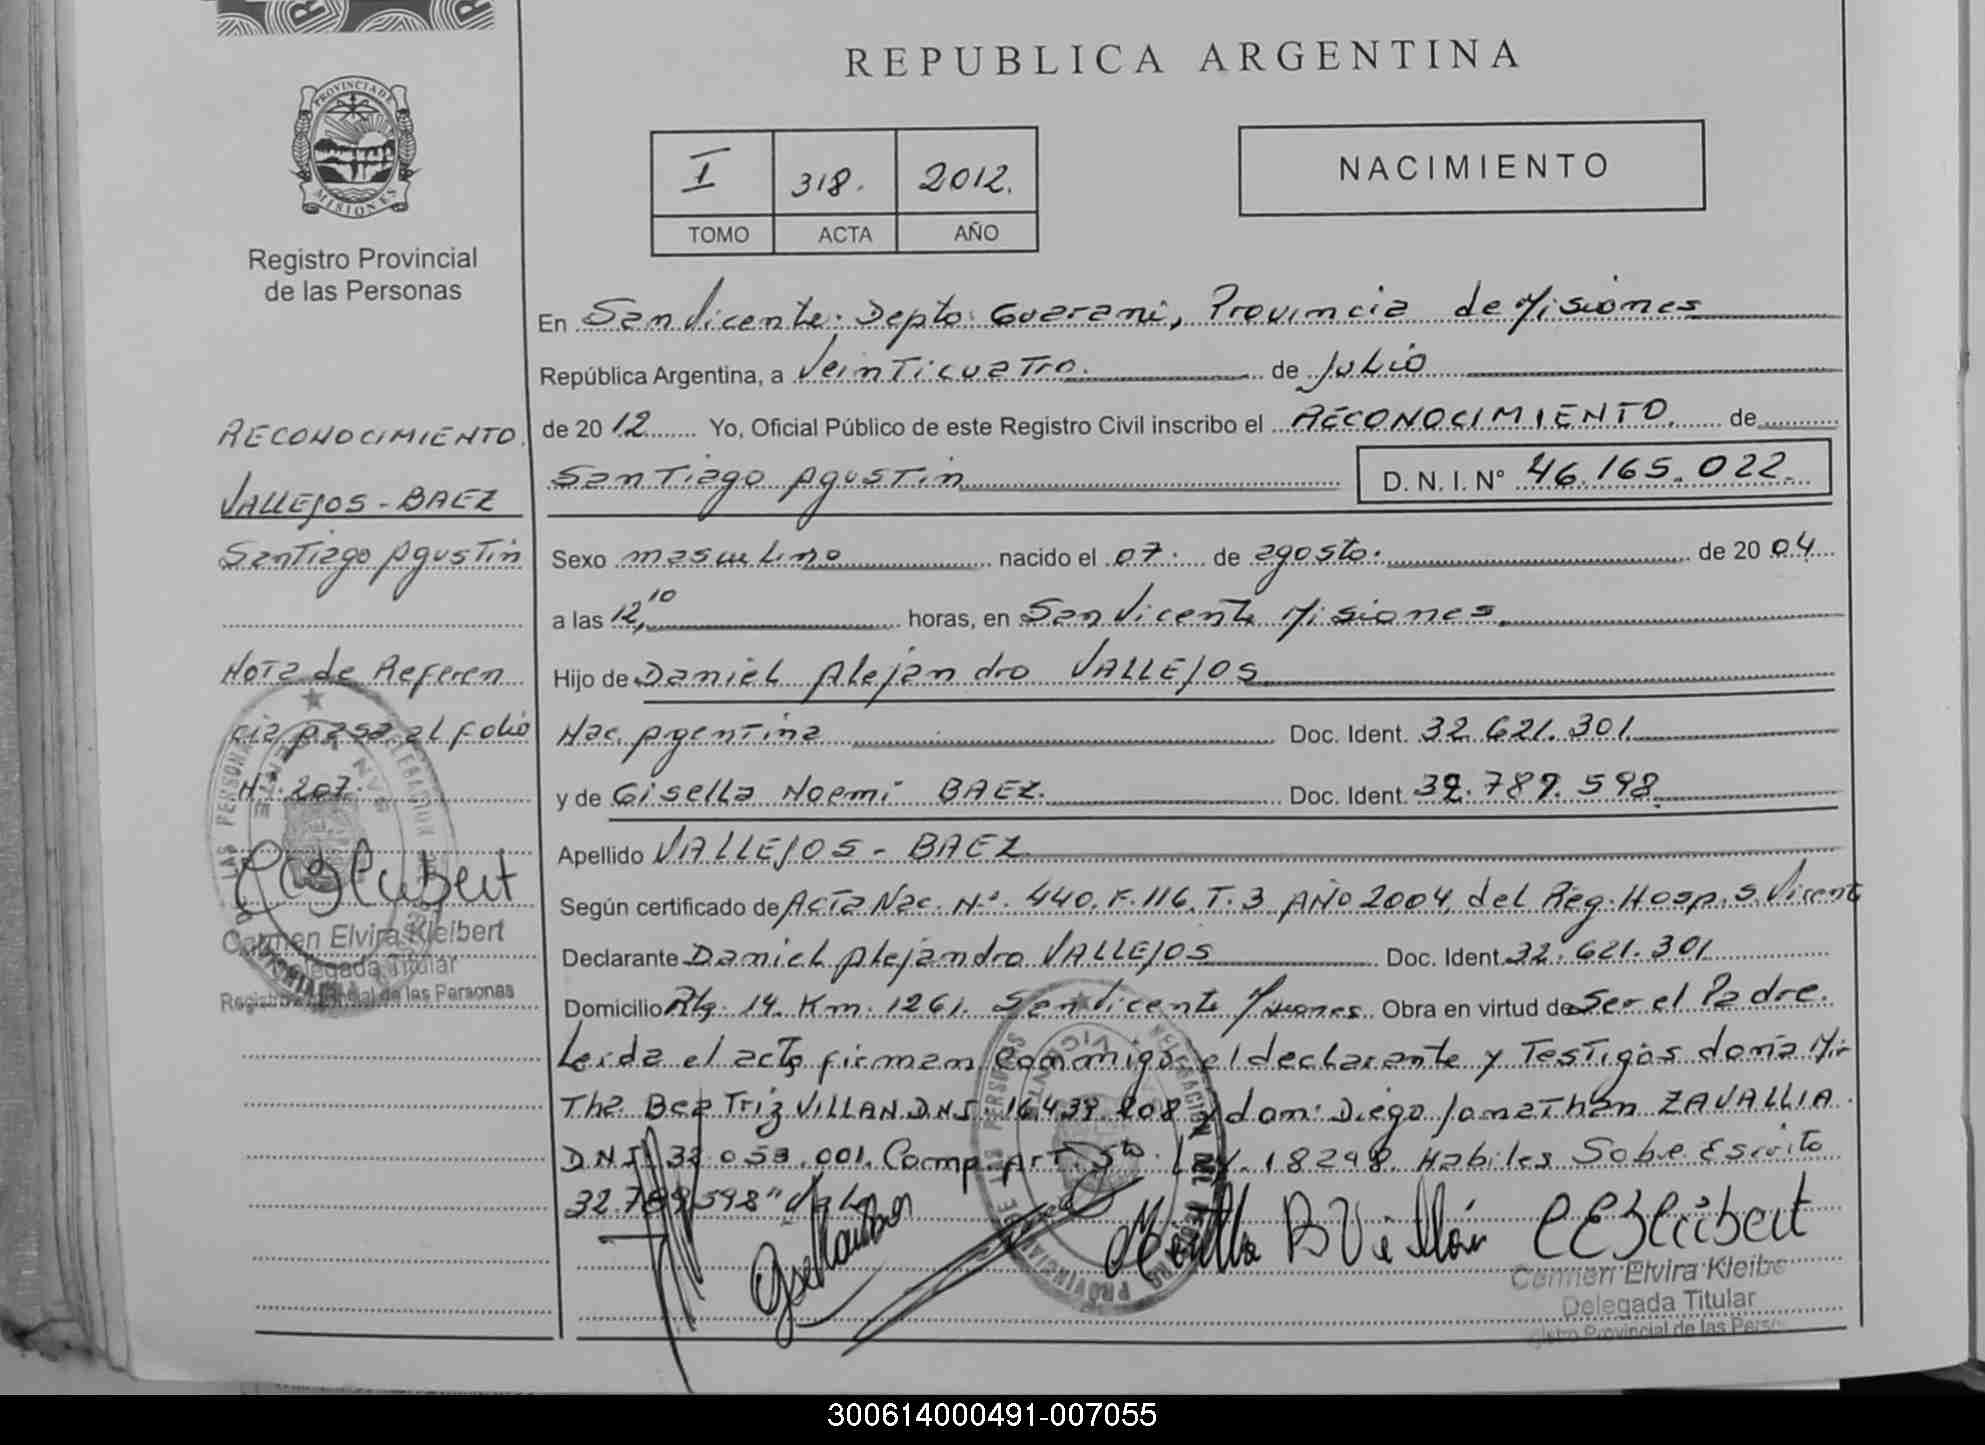 REPUBLICA ARGENTINA
PROVINCIA DE
MISIONES
Registro Provincial
de las Personas
I 318. 2012.
TOMO ACTA AÑO
NACIMIENTO
En San Vicente. Depto Guarani, Provincia de Misiones
República Argentina, a Veinticuatro. de Julio
de 2012 Yo, Oficial Público de este Registro Civil inscribo el RECONOCIMIENTO. de
Santiago Agustin D. N. I. N° 46.165.022.
Sexo masculino nacido el 07. de agosto. de 2004
a las 12,10 horas, en San Vicente Misiones.
Hijo de Daniel Alejandro VALLEJOS
Nac. Agentina Doc. Ident. 32.621.301.
y de Gisella Noemi BAEZ. Doc. Ident. 32.789.598.
Apellido VALLEJOS - BAEZ
Según certificado de Acta Nac. Nº. 440. F. 116. T. 3 AÑO 2004, del Reg. Hosp. S. Vicente
Declarante Daniel Alejandro VALLEJOS Doc. Ident. 32.621.301
Domicilio 14. Km. 1261. San Vicente Misiones Obra en virtud de Ser el Padre.
Leida el acta firman Conmigo el declarante y Testigos doña Mir
tha Beatriz VILLAN DNI. 16.439.208 y don: Diego Jonathan ZAVALLIA.
DNI. 32.053.001. Comp. Art. 5to. Ley. 18248. Habiles Sobe Escrito
32.789.598" Vale
RECONOCIMIENTO.
VALLEJOS - BAEZ
Santiago Agustin
Nota de Referen
cia pasa al folio
Nº. 207.
CEKleibert
Carmen Elvira Kleibert
Delegada Titular
Registro Provincial de las Personas
Mirtha B Villán CEKleibert
Carmen Elvira Kleibe
Delegada Titular
istro Provincial de las Perso
300614000491-007055